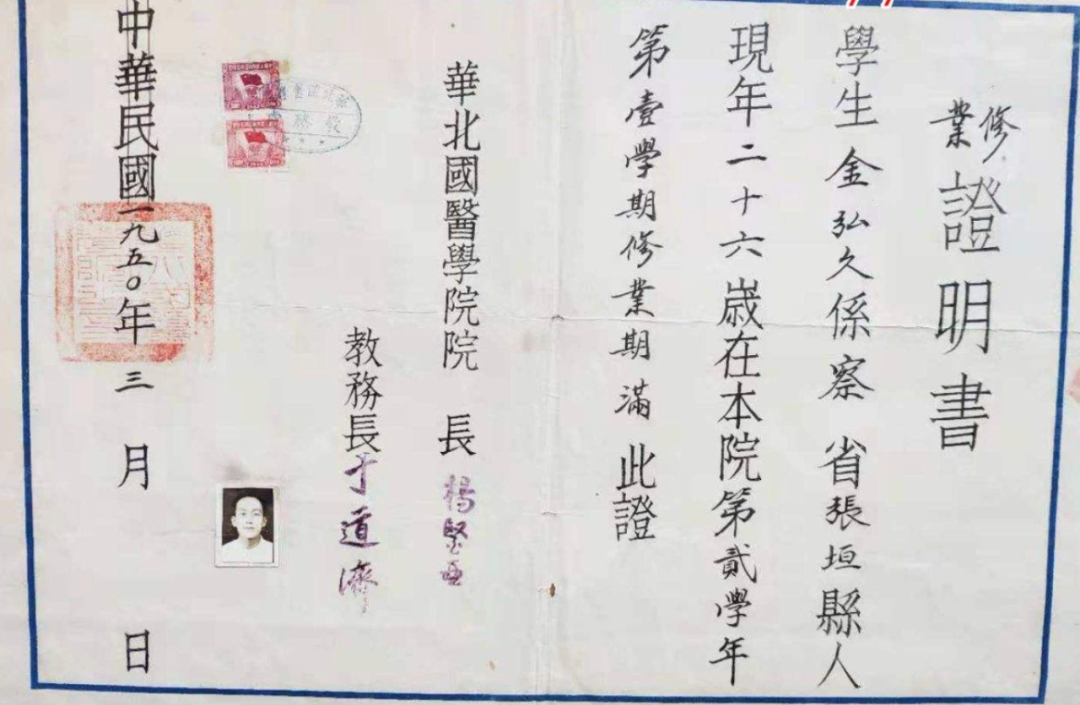 修業證明書
學生金弘久係察省張垣縣人
現年二十六歲在本院第貳學年
第壹學期修業期滿此證
華北國醫學院院長楊醫亞
教務長于道濟
中華民國一九五〇年三月日